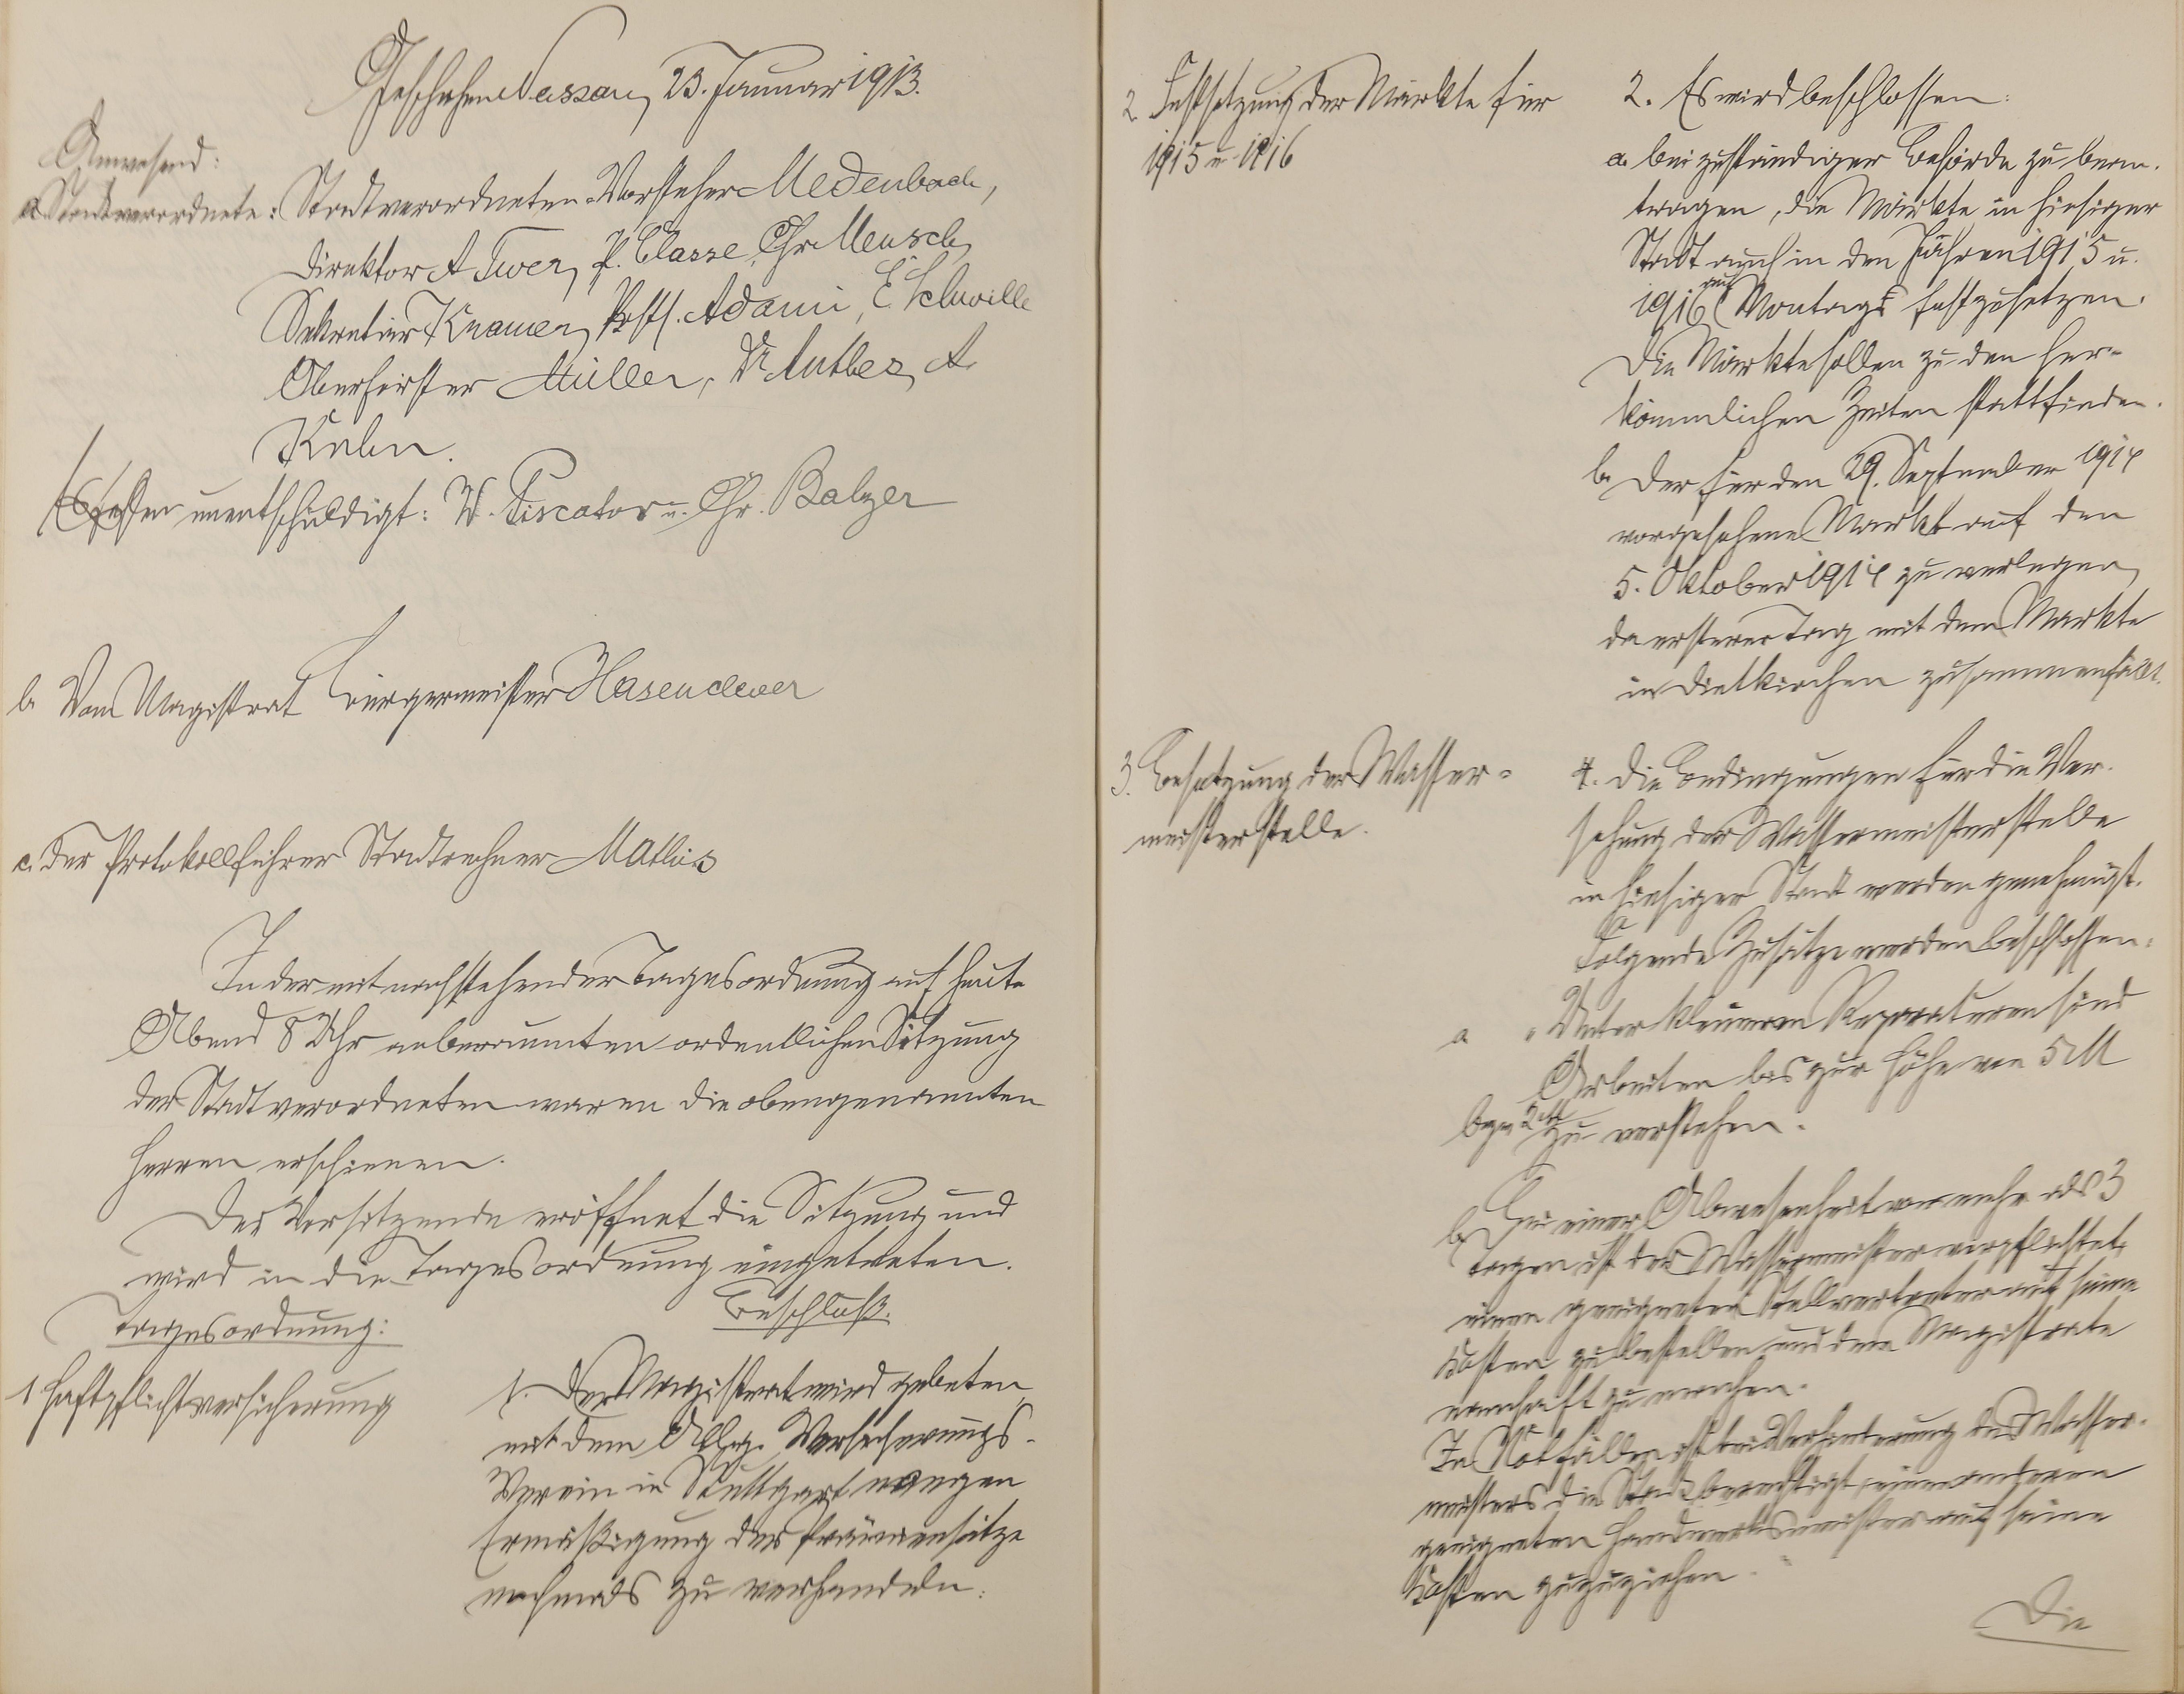 Geschehen Nassau, 23. Januar 1913.
Anwesend:
a. Stadtverordnete: Stadtverordneten-Vorsteher Medenbach,
Direktor A Twer, P. Classe, Chr. Mensch,
Sekretär Kramer, Adami, E.
Oberförster Müller, Dr. Anthes, A.
Kuhn.
Es fehlen unentschuldigt: W. Piscator u. Chr. Balzer
b. Vom Magistrat Bürgermeister Hasenclever
c. Der Protokollführer Stadtrechner Mathis
In der mit nachstehender Tagesordnung auf heute
Abend 8 Uhr anberaumten ordentlichen Sitzung
der Stadtverordneten waren die obengenannten
Herren erschienen.
Der Vorsitzende eröffnet die Sitzung und
wird in die Tagesordnung eingetreten.
Tagesordnung:
Beschluß.
1 Haftpflichtversicherung
1. Der Magistrat wird gebeten
mit dem Allg. Versicherungs-
Verein in Stuttgart wegen
Ermäßigung der Prämiensätze
nochmals zu verhandeln.
2. Festsetzung der Märkte für
1915 u. 1916
2. Es wird beschlossen:
a. bei zuständiger Behörde zu bean-
tragen, die Märkte in hiesiger
Stadt auch in den Jahren 1915 u.
1916 auf Montags festzusetzen.
Die Märkte sollen zu den her-
kömmlichen Zeiten stattfinden.
b. Der für den 29. September 1914
vorgesehene Markt auf den
5. Oktober 1914 zu verlegen,
da ersterer Tag mit dem Markte
in Dietkirchen zusammenfällt.
3. Besetzung der Wasser-
meisterstelle.
4. Die Bedingungen für die Ver-
sehung der Wassermeisterstelle
in hiesiger Stadt werden genehmigt.
Folgende Zusätze werden beschlossen:
a „Unter kleineren Reparaturen sind
Arbeiten bis zur Höhe von 5 M
bezw 2 M zu verstehen.
b. Bei einer Abwesenheit von mehr als 3
Tagen ist der Wassermeister verpflichtet,
einen geeigneten Stellvertreter auf seine
Kosten zu bestellen und dem Magistrate
namhaft zu machen.
In Notfällen ist bei Verhinderung des Wasser-
meisters die Stadt berechtigt, einen anderen
geeigneten Handwerksmeister auf seine
Kosten zuzuziehen."
Die